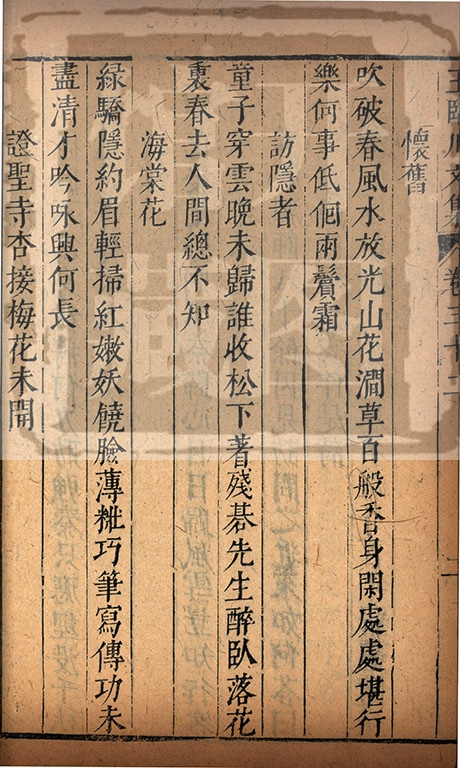 王臨川文集 卷三十二
懷舊
吹破春風水放光山花澗草百般香身閑處處堪行
樂何事低佪兩鬢霜
訪隱者
童子穿雲晚未歸誰收松下著殘碁先生醉臥落花
裏春去人間總不知
海棠花
綠驕隱約眉輕掃紅嫩妖饒臉薄粧巧筆寫傳功未
盡清才吟咏興何長
證聖寺杏接梅花未開